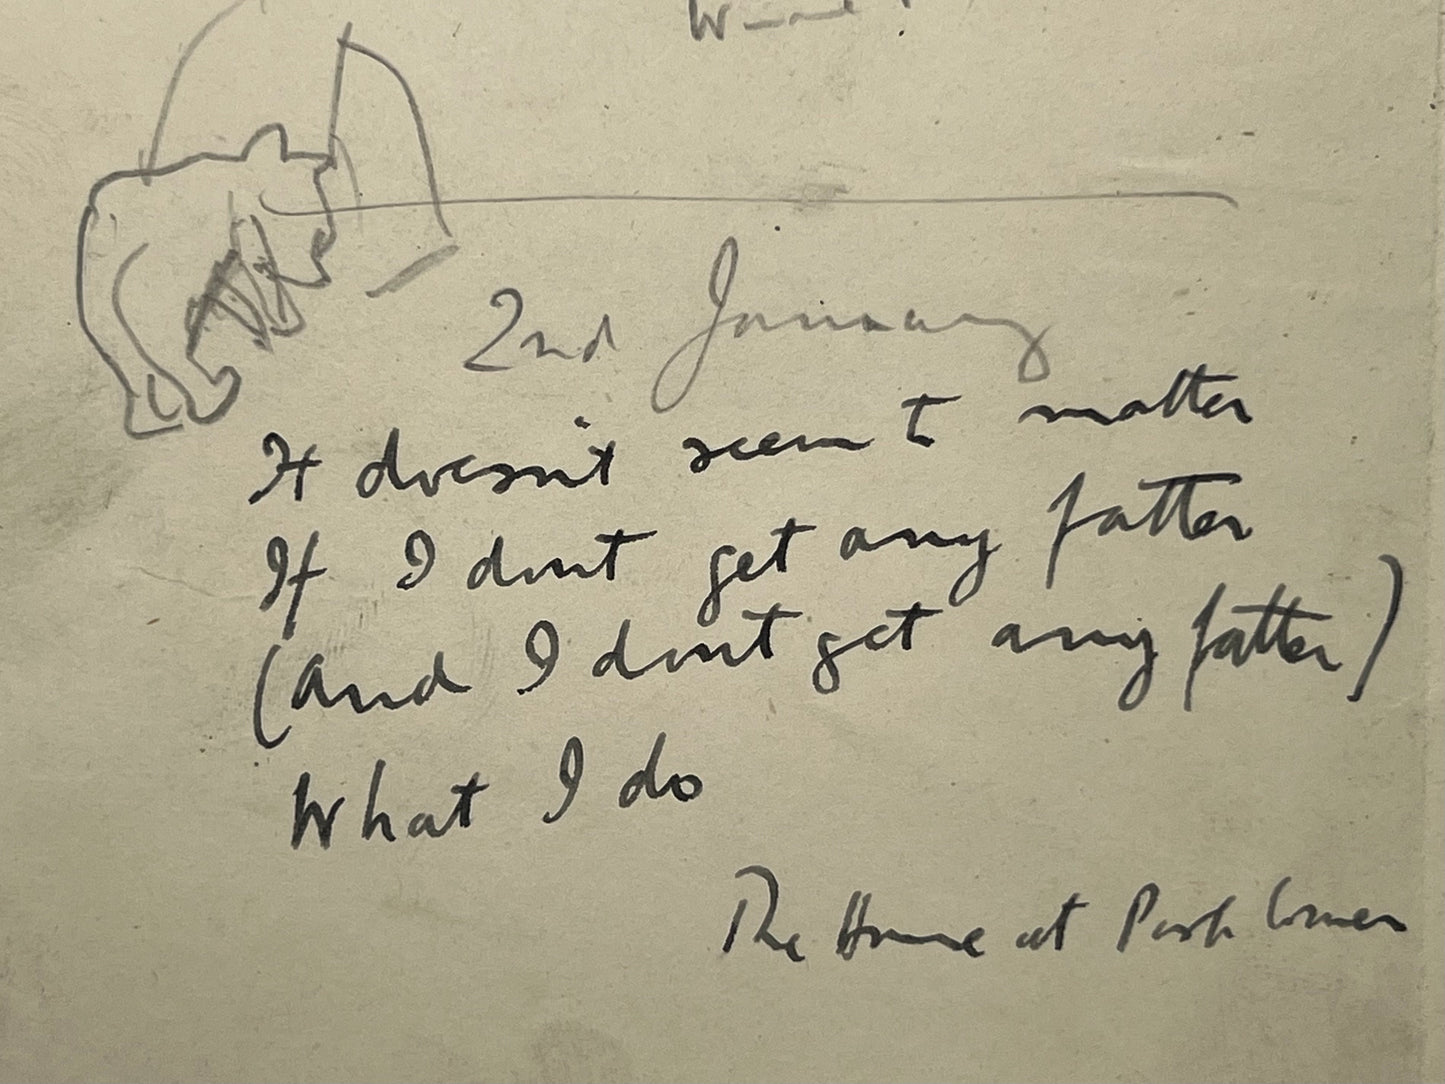 2nd January
It doesn't seem to matter
If I dont get any fatter
(and I dont get any fatter)
What I do
The House at Pooh Corner